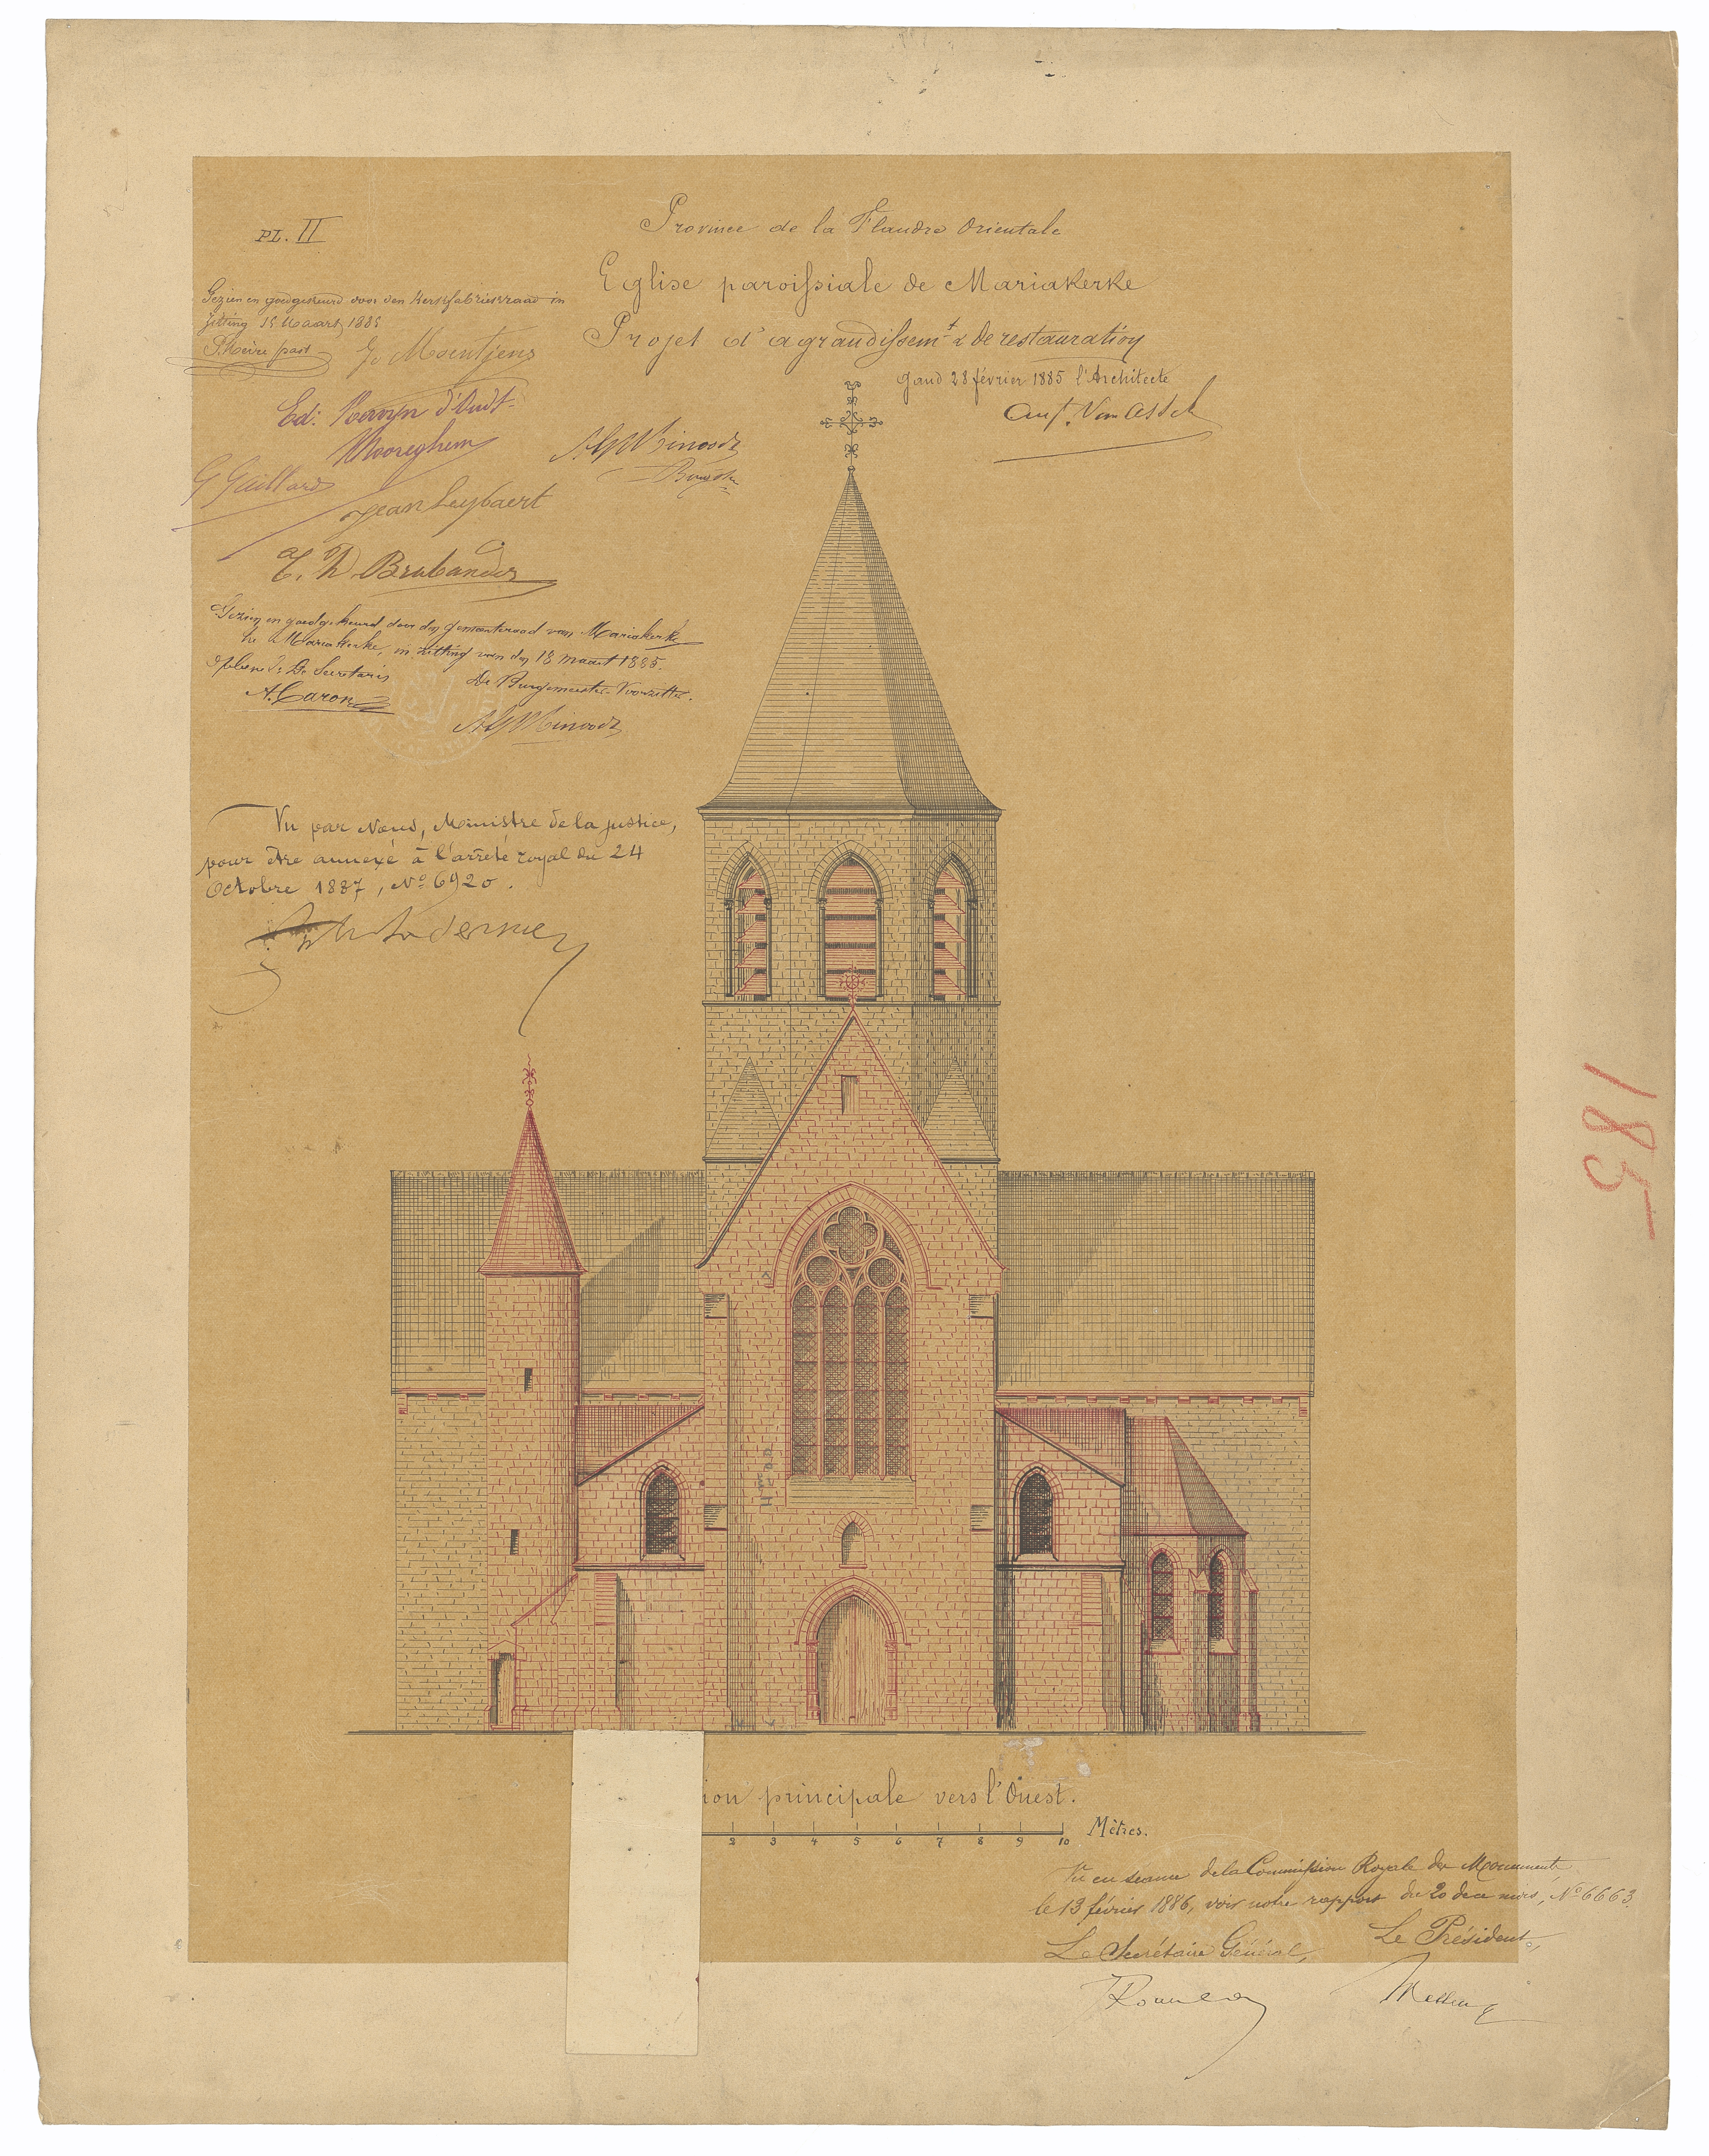 PL. II
Province de la Flandre Orientale
Eglise paroissiale de Mariakerke
Projet d'agrandissemt & de restauration
Gand 28 février 1885 l'Architecte
Aug. Van Assche
Gezien en goedgekeurd door den Kerkfabriekraad in
zitting 15 Maart 1885
past
Ed:
Mooreghem
G Guillard
Jean Leybaert
Brabander
Gezien en goedgekeurd door den gemeenteraad van Mariakerke
te Mariakerke, in zitting van den 18 maart 1885.
De Secretaris
De Burgemeester Voorzitter.
A. Caron
Vu par Nous, Ministre de la justice,
pour être annexé à l'arrêté royal du 24
Octobre 1887, No 6920.
183
ion principale vers l'Ouest.
2 3 4 5 6 7 8 9 10 Mètres.
Vu en séance de la Commission Royale des Monuments
le 13 février 1886, voir notre rapport du 20 de ce mois, No 6663.
Le Secrétaire Général,
Le Président,